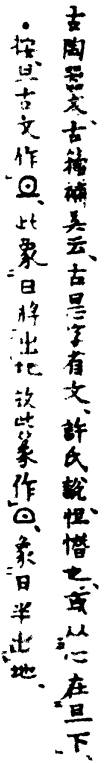 古陶器文、古籀補吳云、古旦字有文、許氏說怛憯也、或从心在旦下、
・按旦古文作、此象日將出地、故此篆作、象日半出地、